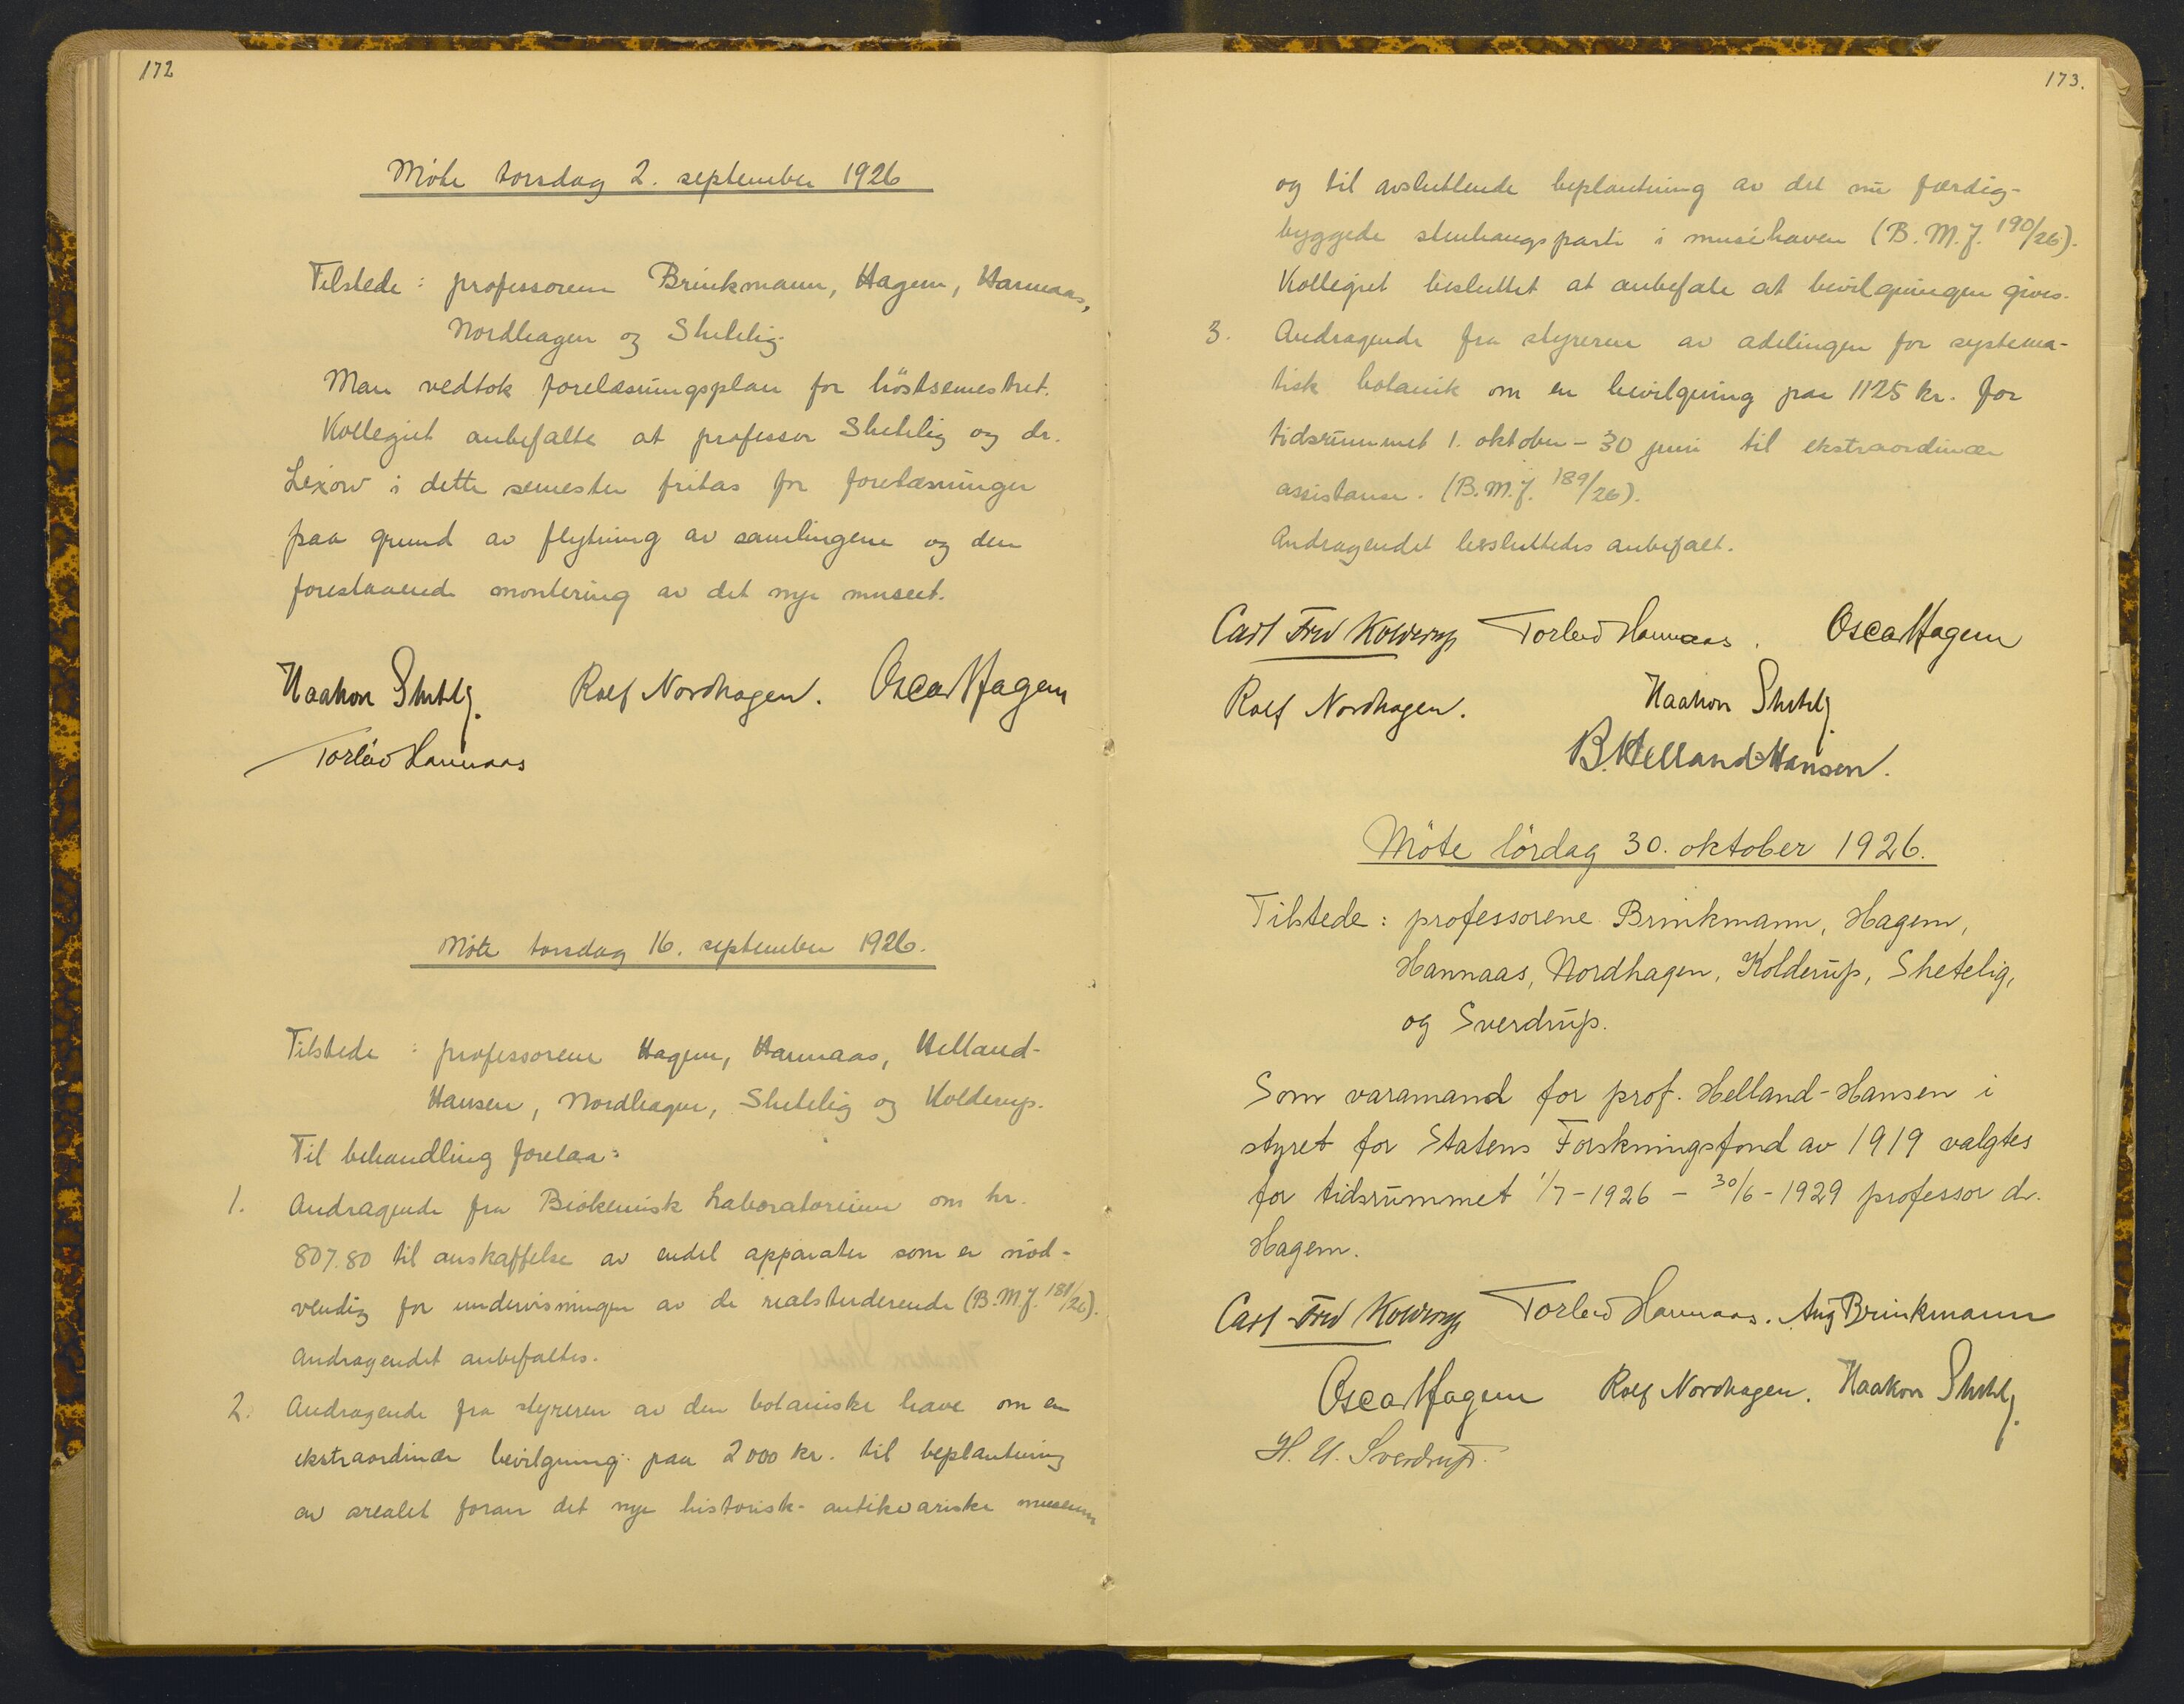 172
Möte torsdag 2. september 1926
Tilstede: professorene Brinkmann, Hagem, Hannaas,
Nordhagen og Shetelig.
Man vedtok forelæsningsplan for höstsemestret.
Kollegiet anbefalte at professor Shetelig og dr.
Lexow i dette semester fritas for forelæsninger
paa grund av flytning av samlingene og den
forestaaende montering av det nye museet.
Haakon Shetelig. Rolf Nordhagen. Oscar Hagem
Torleiv Hannaas
Möte torsdag 16. september 1926.
Tilstede: professorene Hagem, Hannaas, Helland-
Hansen, Nordhagen, Shetelig og Kolderup.
Til behandling forelaa:
1. Andragende fra Biokemisk Laboratorium om kr.
807.80 til anskaffelse av endel apparater som er nöd-
vendig for undervisningen av de realstuderende (B.M.J. 181/26).
Andragendet anbefaltes.
2. Andragende fra styreren av den botaniske have om en
ekstraordinær bevilgning paa 2000 kr. til beplantning
av arealet foran det nye historisk-antikvariske museum
173.
og til avsluttende beplantning av det nu færdig-
byggede stenhaugsparti i muséhaven (B.M.J. 190/26).
Kollegiet besluttet at anbefale at bevilgningen gives.
3. Andragende fra styreren av adelingen for systema-
tisk botanik om en bevilgning paa 1125 kr. for
tidsrummet 1. oktober - 30 juni til ekstraordinær
assistanse. (B.M.J. 189/26).
Andragendet besluttedes anbefalt.
Carl Fred Kolderup Torleiv Hannaas. Oscar Hagem
Rolf Nordhagen. Haakon Shetelig
B. Helland-Hansen.
Möte lördag 30. oktober 1926.
Tilstede: professorene Brinkmann, Hagem,
Hannaas, Nordhagen, Kolderup, Shetelig,
og Sverdrup.
Som varamand for prof. Helland-Hansen i
styret for Statens Forskningsfond av 1919 valgtes
for tidsrummet 1/7-1926 - 30/6-1929 professor dr.
Hagem.
Carl Fred Kolderup Torleiv Hannaas. Aug Brinkmann
Oscar Hagem Rolf Nordhagen. Haakon Shetelig.
H. U. Sverdrup.